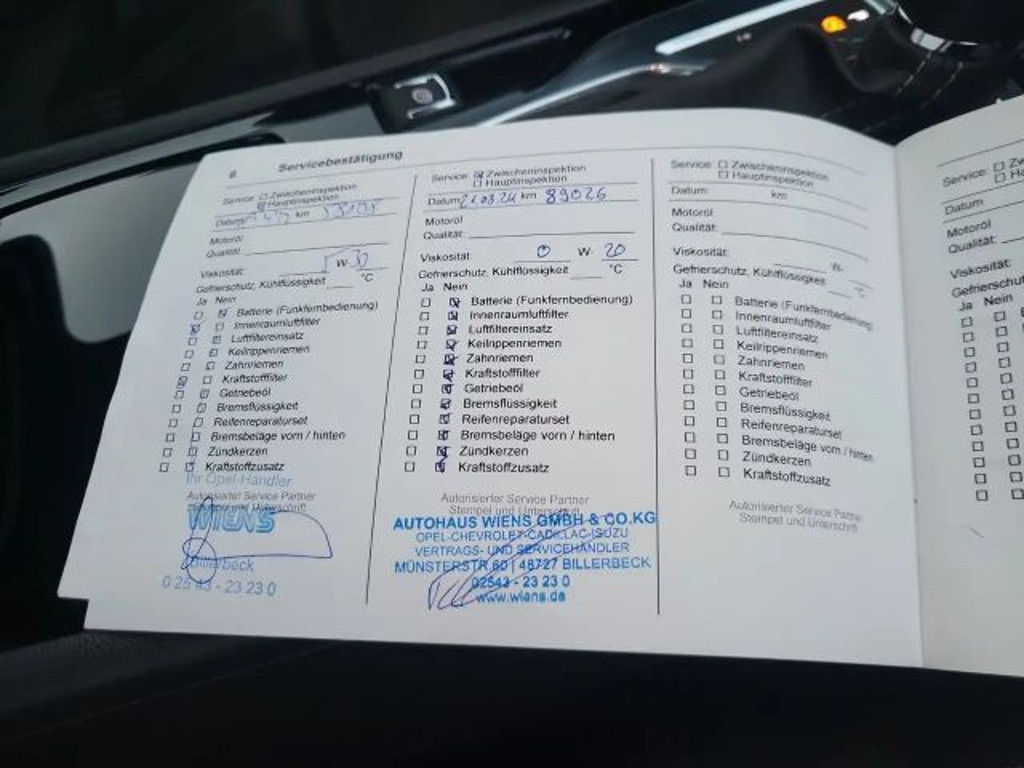 6 Servicebestätigung
Service: ☐ Zwischeninspektion
☒ Hauptinspektion
Datum: km
Motoröl
Qualität:
Viskosität: 5 W- 30
Gefrierschutz, Kühlflüssigkeit °C
Ja Nein
Batterie (Funkfernbedienung)
Innenraumluftfilter
Luftfiltereinsatz
Keilrippenriemen
Zahnriemen
Kraftstofffilter
Getriebeöl
Bremsflüssigkeit
Reifenreparaturset
Bremsbeläge vorn / hinten
Zündkerzen
Kraftstoffzusatz
Ihr Opel-Händler
Autorisierter Service Partner
Stempel und Unterschrift
WIENS
Billerbeck
0 25 43 - 23 23 0
Service: ☒ Zwischeninspektion
☐ Hauptinspektion
Datum: 21.03.24 km 89026
Motoröl
Qualität:
Viskosität: 0 W- 20
Gefrierschutz, Kühlflüssigkeit °C
Ja Nein
Batterie (Funkfernbedienung)
Innenraumluftfilter
Luftfiltereinsatz
Keilrippenriemen
Zahnriemen
Kraftstofffilter
Getriebeöl
Bremsflüssigkeit
Reifenreparaturset
Bremsbeläge vorn / hinten
Zündkerzen
Kraftstoffzusatz
Autorisierter Service Partner
Stempel und Unterschrift
AUTOHAUS WIENS GMBH & CO.KG
OPEL-CHEVROLET-CADILLAC-ISUZU
VERTRAGS- UND SERVICEHÄNDLER
MÜNSTERSTR.60 | 48727 BILLERBECK
02543 - 23 23 0
www.wiens.de
Service: ☐ Zwischeninspektion
☐ Hauptinspektion
Datum: km
Motoröl
Qualität:
Viskosität: W-
Gefrierschutz, Kühlflüssigkeit °C
Ja Nein
Batterie (Funkfernbedienung)
Innenraumluftfilter
Luftfiltereinsatz
Keilrippenriemen
Zahnriemen
Kraftstofffilter
Getriebeöl
Bremsflüssigkeit
Reifenreparaturset
Bremsbeläge vorn / hinten
Zündkerzen
Kraftstoffzusatz
Autorisierter Service Partner
Stempel und Unterschrift
Service: ☐ Zw
☐ Ha
Datum
Motoröl
Qualität:
Viskosität:
Gefrierschut
Ja Nein